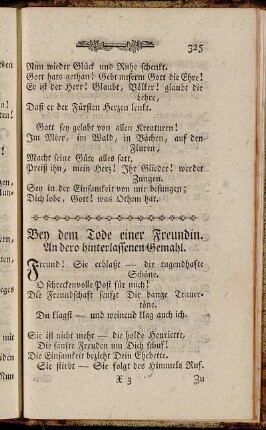 325
Nun wieder Glück und Ruhe schenkt.
Gott hats gethan! Gebt unserm Gott die Ehre!
Er ist der Herr! Glaubt, Völker! glaubt die
Lehre,
Daß er der Fürsten Herzen lenkt.
Gott sey gelobt von allen Kreaturen!
Im Meer, im Wald, in Bächen, auf den
Fluren,
Macht seine Güte alles satt.
Preiß ihn, mein Herz! Ihr Glieder! werdet
Zungen.
Sey in der Einsamkeit von mir besungen;
Dich lobe, Gott! was Othem hat.
Bey dem Tode einer Freundin.
An dero hinterlassenen Gemahl.
Freund! Sie erblaßt — die tugendhafte
Schöne.
O schreckenvolle Post für mich!
Die Freundschaft seufzt Dir bange Trauer-
töne.
Du klagst — und weinend klag auch ich.
Sie ist nicht mehr — die holde Henriette,
Die sanfte Freuden um Dich schuf!
Die Einsamkeit bezieht Dein Ehebette.
Sie stirbt — Sie folgt des Himmels Ruf.
X 3
Zu